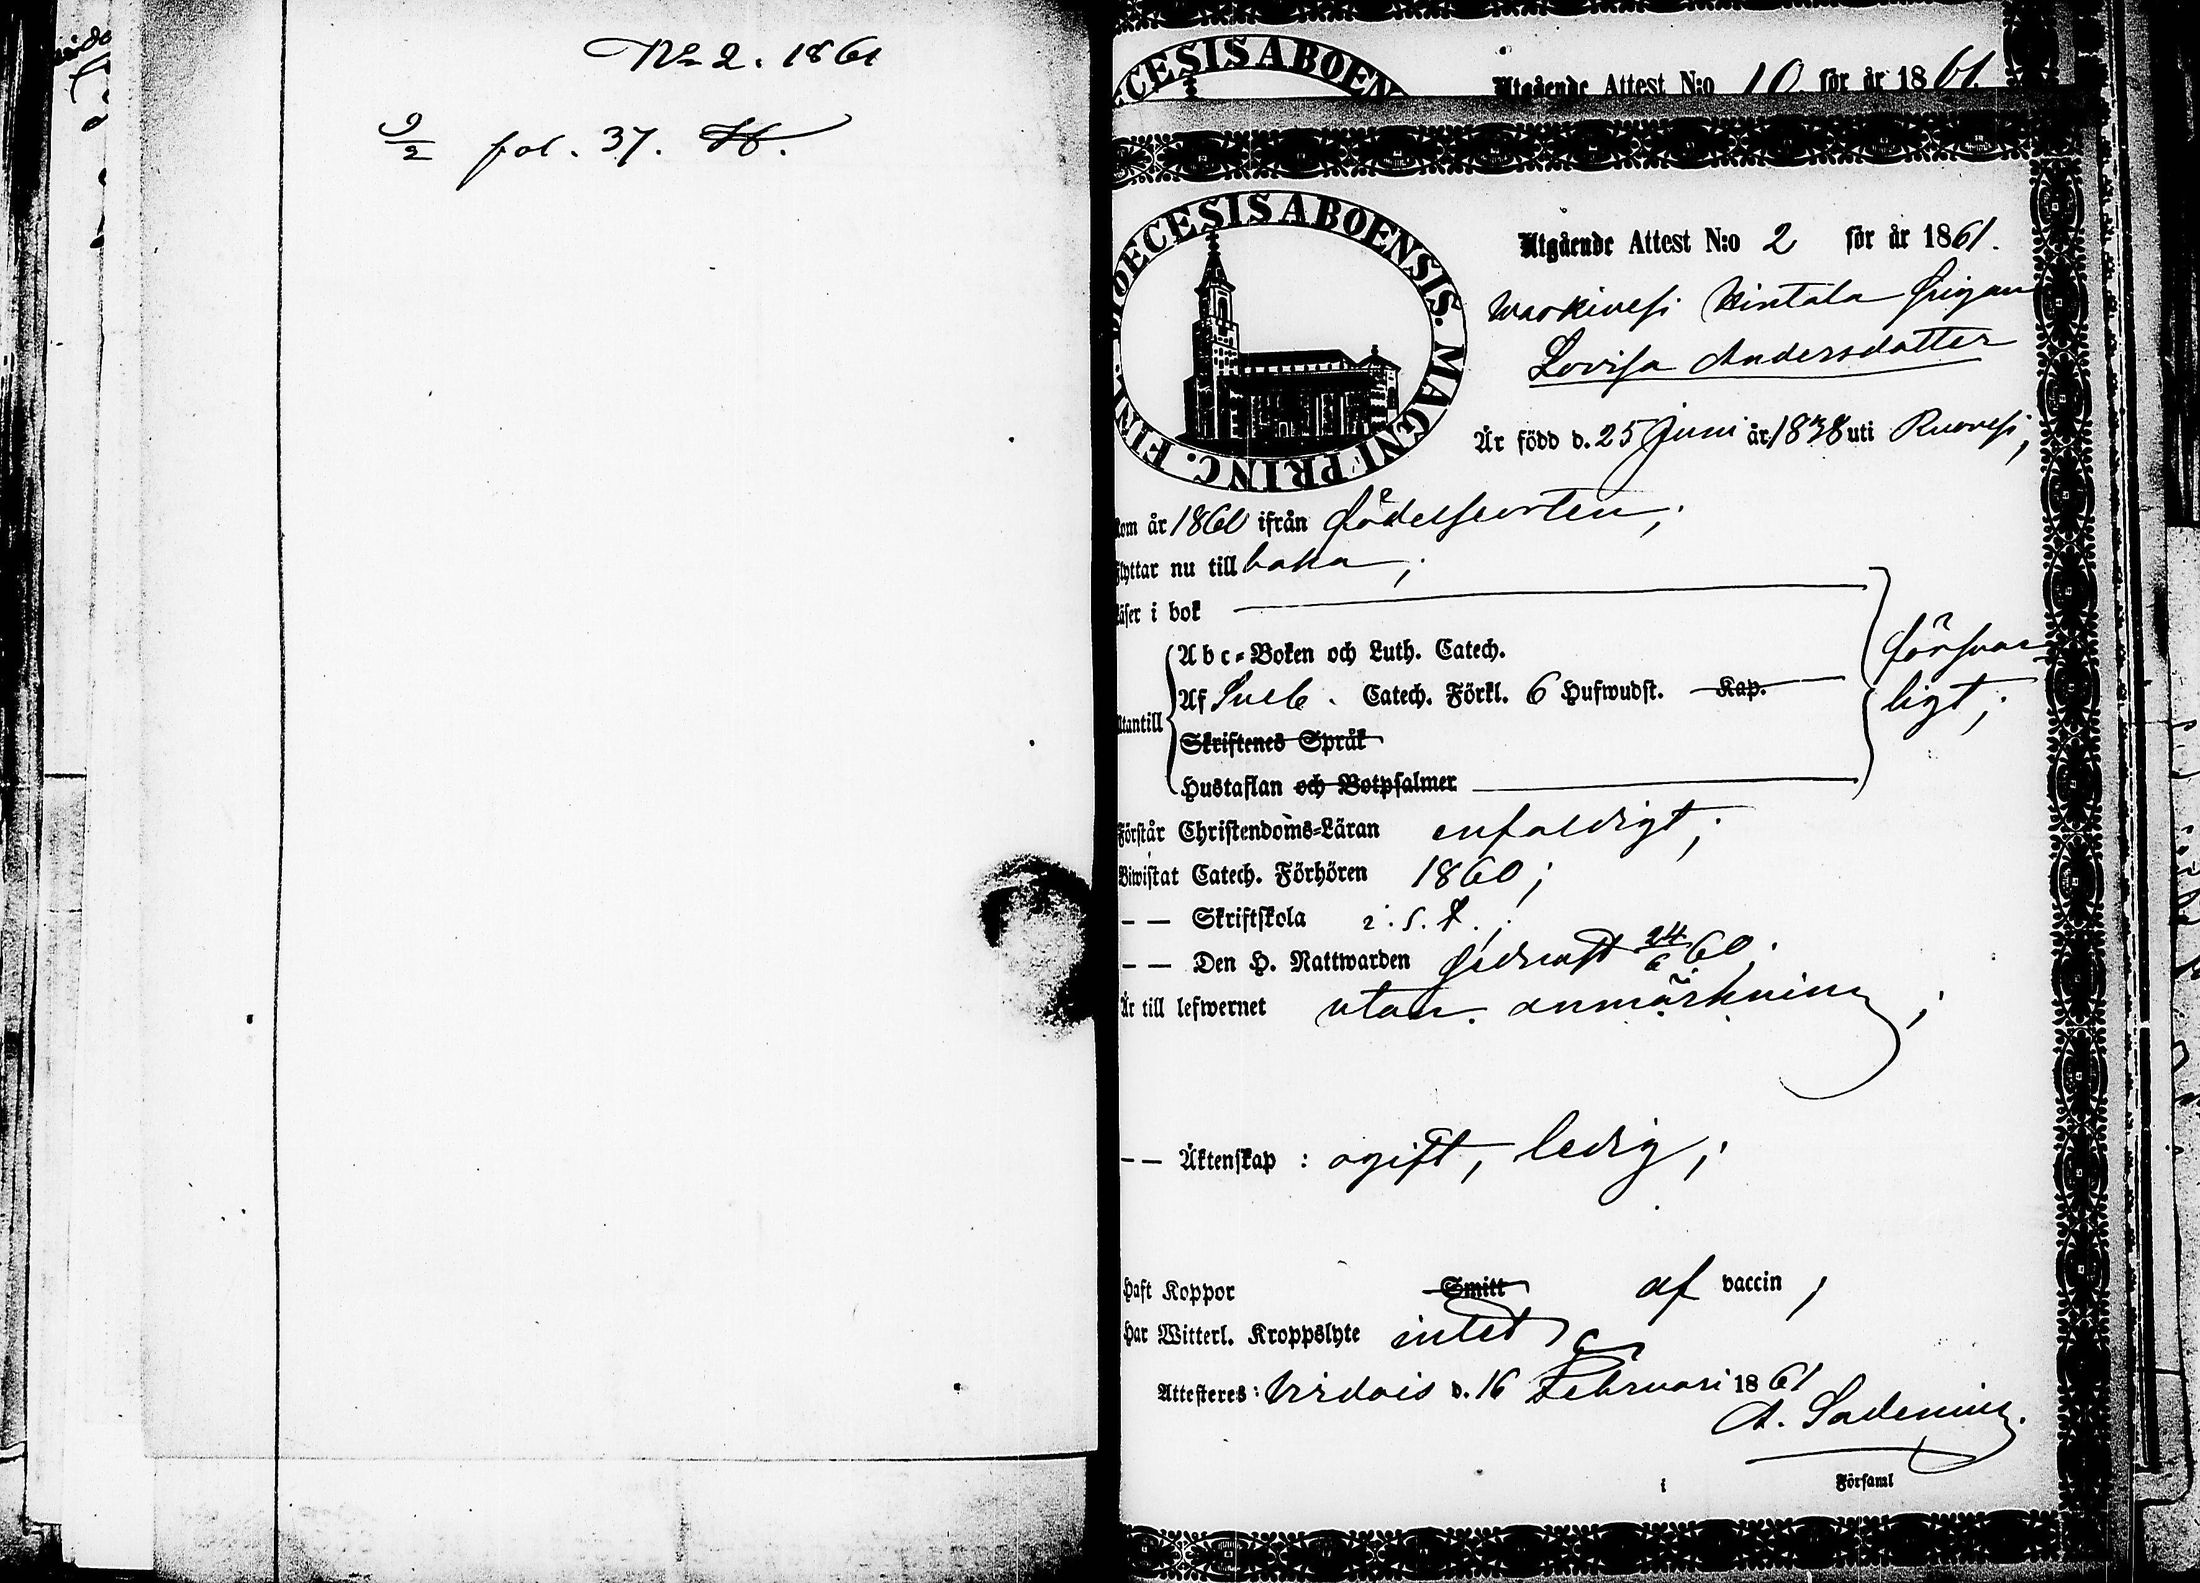 No 2. 1861
9/2 fol. 37.
CESIS ABOEN
Utgående Attest N:o 10 för år 1861.
DIOECESIS ABOENSIS. MAGNI PRINC. FINL.
Utgående Attest N:o 2 för år 1861.
Warkivesi Kintala Pigan
Lovisa Andersdotter
Är född d. 25 Juni år 1838 uti Ruovesi;
Kom år 1860 ifrån födelseorten;
Flyttar nu till baka;
Läser i bok
Abc-Boken och Luth. Catech.
Af Sveb. Catech. Förkl. 6 Hufwudst. Kap.
Utantill
Skriftenes Språk
Hustaflan och Botpsalmer
försvar-
ligt;
Förstår Christendoms-Läran enfaldigt;
Biwistat Catech. Förhören 1860;
-- Skriftskola
-- Den H. Nattwarden sednast 24/6 60.
Är till lefwernet utan anmärkning;
-- Äktenskap: ogift, ledig;
Haft Koppor Smitt af vaccin;
Har Witterl. Kroppslyte intet
Attesteres: Virdois d. 16 Februari 1861
i Församl